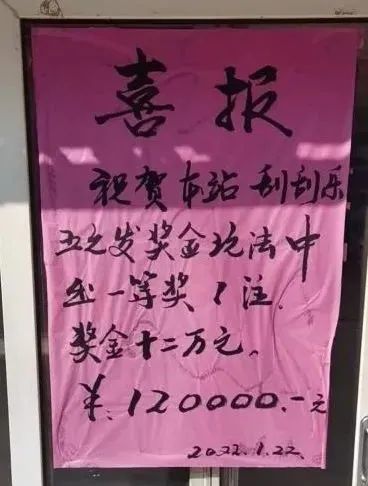 喜报
祝贺本站刮刮乐
五之发奖金玩法中
出一等奖1注、
奖金十二万元。
¥.120000.-元
2022.1.22.